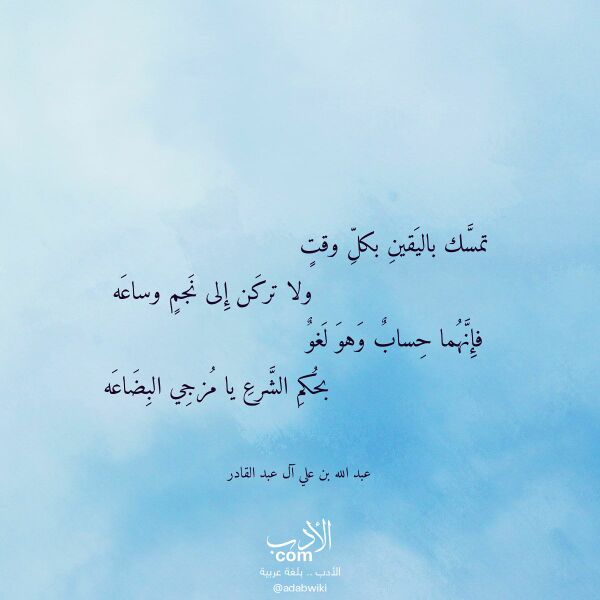 تمسَّك باليَقينِ بكلِّ وقتٍ
ولا تركَن إِلى نَجمٍ وساعَه
فإِنَّهُما حِسابٌ وَهوَ لَغوٌ
بحُكمِ الشَّرعِ يا مُزجِي البِضَاعَه
عبد الله بن علي آل عبد القادر
الأدب
com
الأدب .. بلغة عربية
@adabwiki